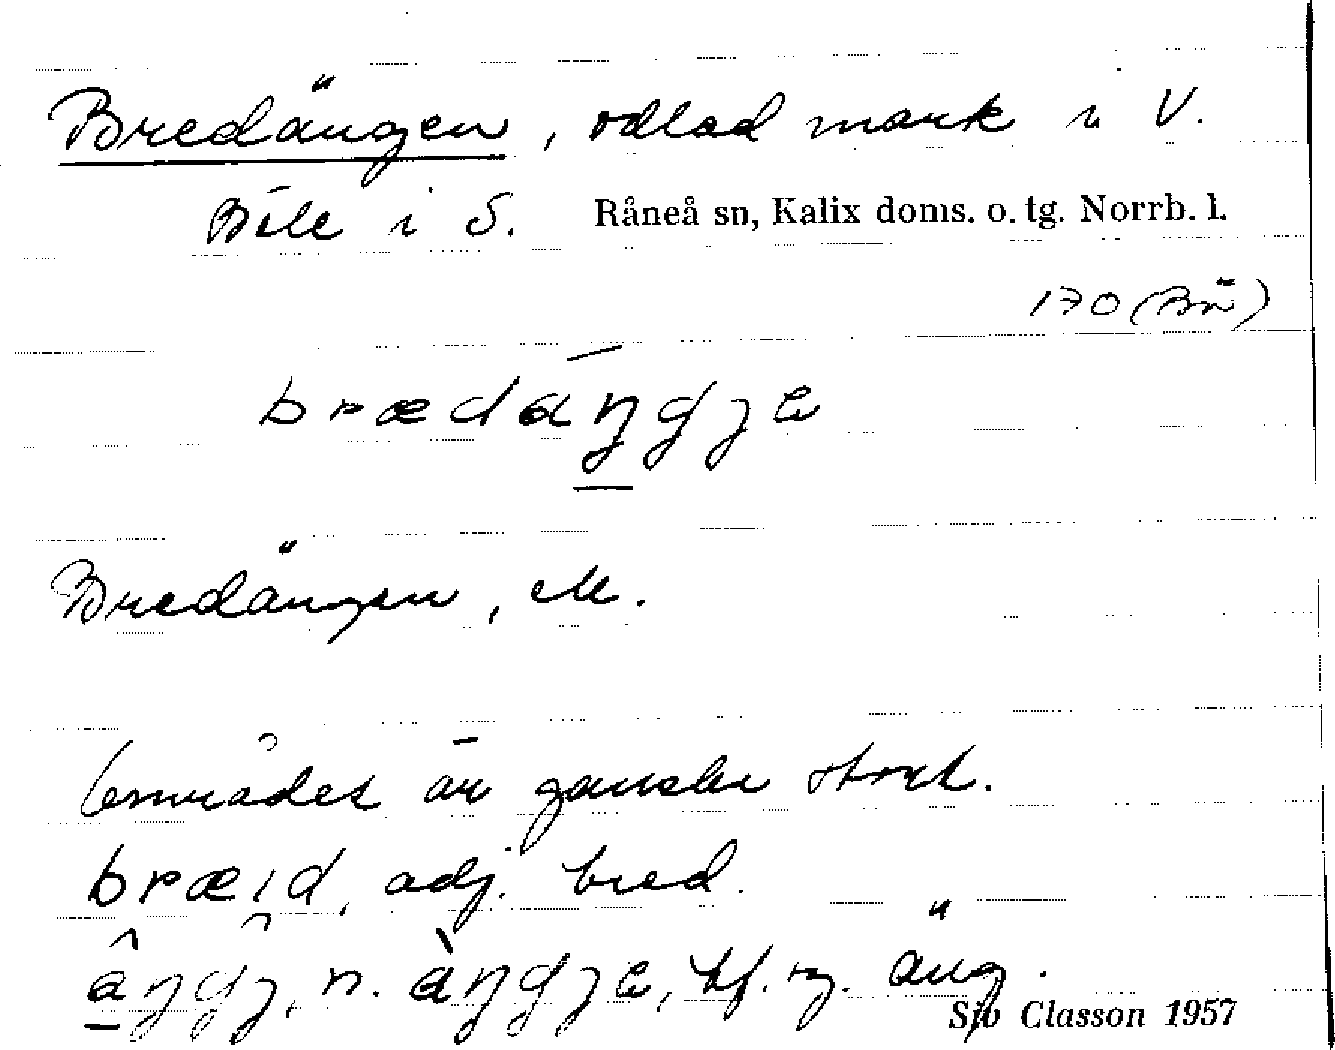 Bredängen, odlad mark i V.
Böle i S. Råneå sn, Kalix doms. o. tg. Norrb. l.
170 (Br)
brædáŋgjɐ
Bredängen, ek.
Området är ganska stort.
bræɩd, adj. bred.
âŋgj, n. àŋgjɐ, bf. äng.
Siv Classon 1957